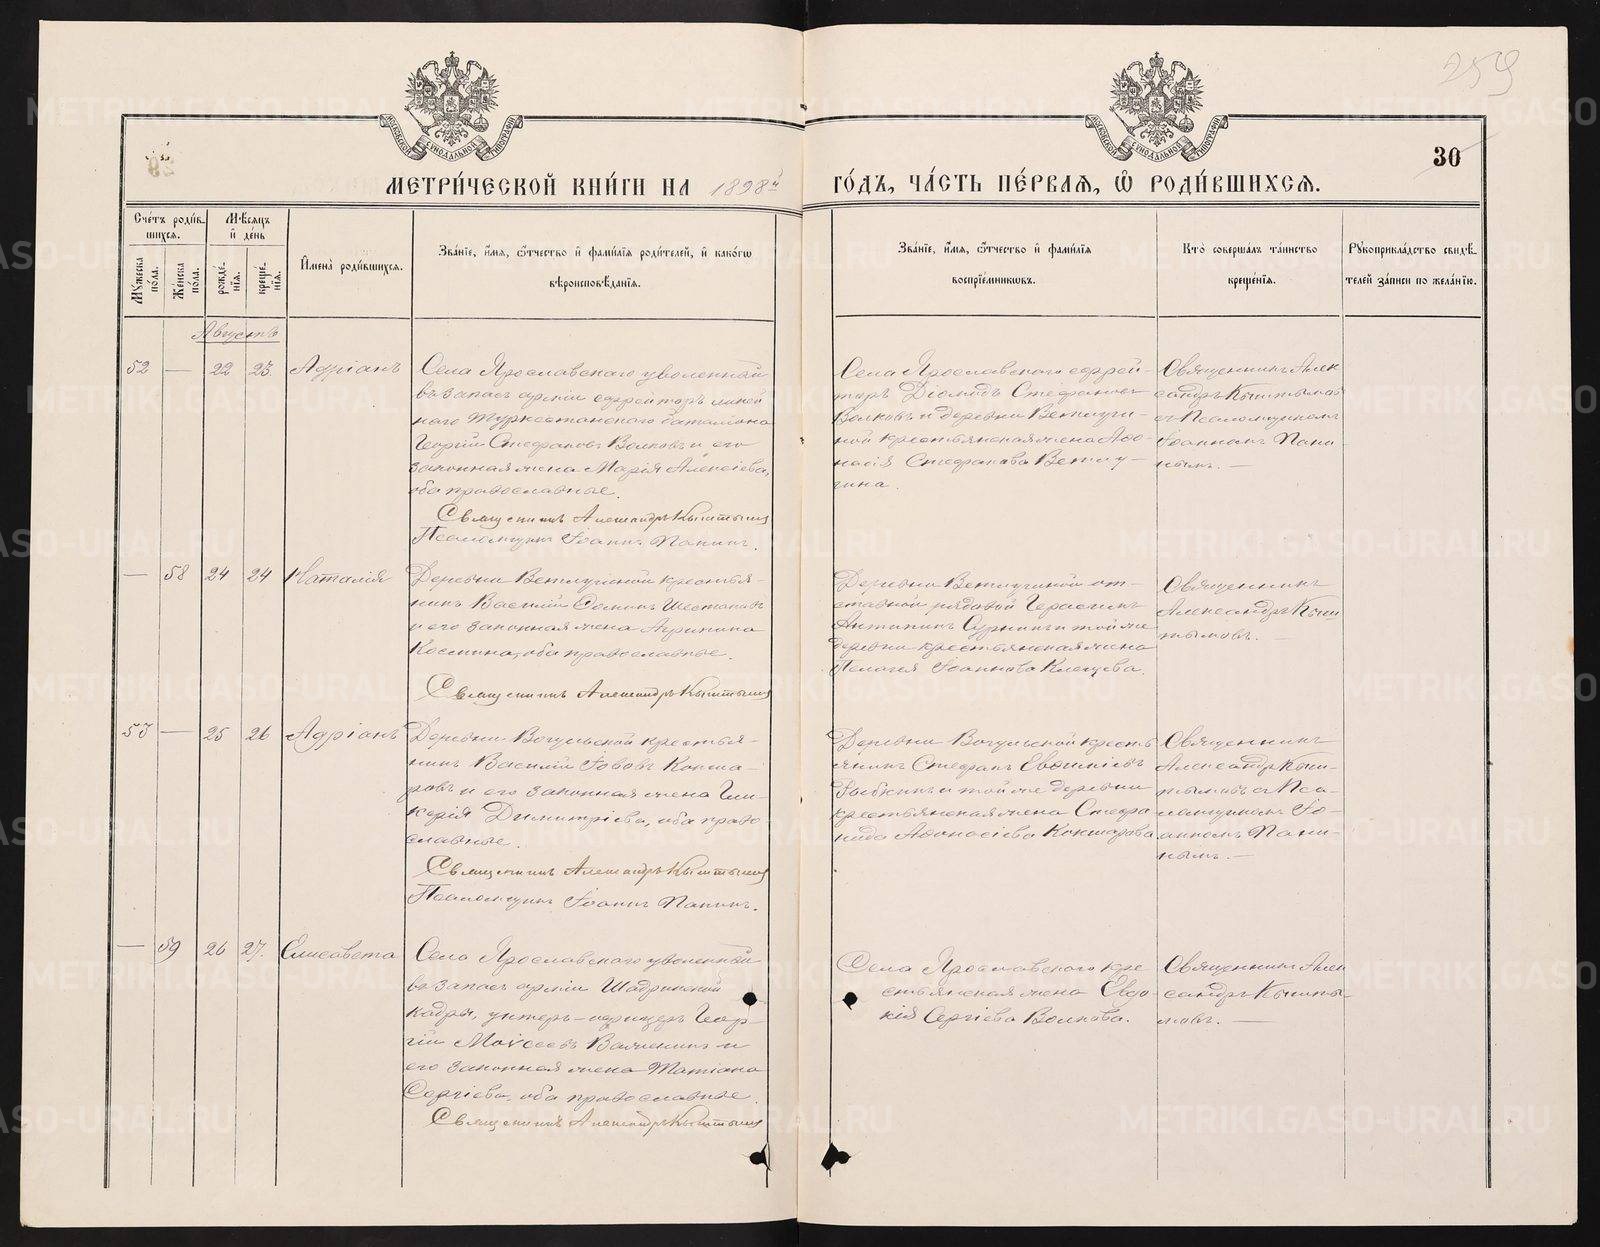 259
30
МЕТРИ́ЧЕСКОЙ КНИ́ГИ НА 1898й ГО́ДЪ, ЧА́СТЬ ПЕ́РВАЯ, Ѡ҆ РОДИ́ВШИХСЯ.
Сче́тъ роди́в-
шихся.
Мꙋ́жеска по́ла.
Же́нска по́ла.
Мѣ́сяцъ
и҆ де́нь
рожде́-
нїя.
креще́-
нїя.
И҆мена̀ роди́вшихся.
Зва́нїе, и҆́мя, ѻ҆́тчество и҆ фами́лїя роди́телей, и҆ како́гѡ
вѣроисповѣ́данїя.
Зва́нїе, и҆́мя, ѻ҆́тчество и҆ фами́лїя
воспрїе́мникѡвъ.
Кто̀ соверша́лъ та́инство
креще́нїя.
Рꙋкоприкла́дство свидѣ́-
телей за́писи по жела́нїю.
Августъ
52 — 22 23. Адріанъ
Села Ярославскаго уволенный
въ запасъ арміи ефрейторъ линей
наго Туркестанскаго баталіона
Георгій Стефановъ Волковъ и его
законная жена Марія Алексіева,
оба православные.
Священникъ Александръ Кыштымовъ
Псаломщикъ Іоаннъ Панинъ.
Села Ярославскаго ефрей-
торъ Діомидъ Стефановъ
Волковъ и деревни Ветлуги-
ной крестьянская жена Афо-
насія Стефанова Ветлу-
гина.
Священникъ Алек
сандръ Кыштымовъ
съ Псаломщикомъ
Іоанномъ Пани-
нымъ. —
— 58 24 24 Наталія
Деревни Ветлугиной крестья-
нинъ Василій Шестаковъ
и его законная жена Агрипина
Космина, оба православные.
Священникъ Александръ Кыштымовъ
Деревни Ветлугиной от-
ставной рядовой Герасимъ
Антипинъ и той же
деревни крестьянская жена
Пелагея Іоаннова Клещева.
Священникъ
Александръ Кыш
тымовъ. —
53 — 25 26 Адріанъ
Деревни Вогульской крестья-
нинъ Василій Іововъ Кокша-
ровъ и его законная жена Гли-
керія Димитріева, оба право
славные.
Священникъ Александръ Кыштымовъ
Псаломщикъ Іоаннъ Панинъ.
Деревни Вогульской кресть
янинъ Стефанъ Евфиміевъ
и той же деревни
крестьянская жена Стефа
нида Афонасіева Кокшарова
Священникъ
Александръ Кыш-
тымовъ съ Пса-
ломщикомъ Іо-
анномъ Пани-
нымъ. —
— 59 26 27. Елисавета
Села Ярославскаго уволенный
въ запасъ арміи Шадринской
кадры, унтеръ-офицеръ Геор-
гій Моисеевъ и
его законная жена Татіана
Сергіева, оба православные.
Священникъ Александръ Кыштымовъ
Села Ярославскаго кре
стьянская жена Евдо-
кія Сергіева Волкова.
Священникъ Алек
сандръ Кышты-
мовъ. —
METRIKI.GASO-URAL.RU